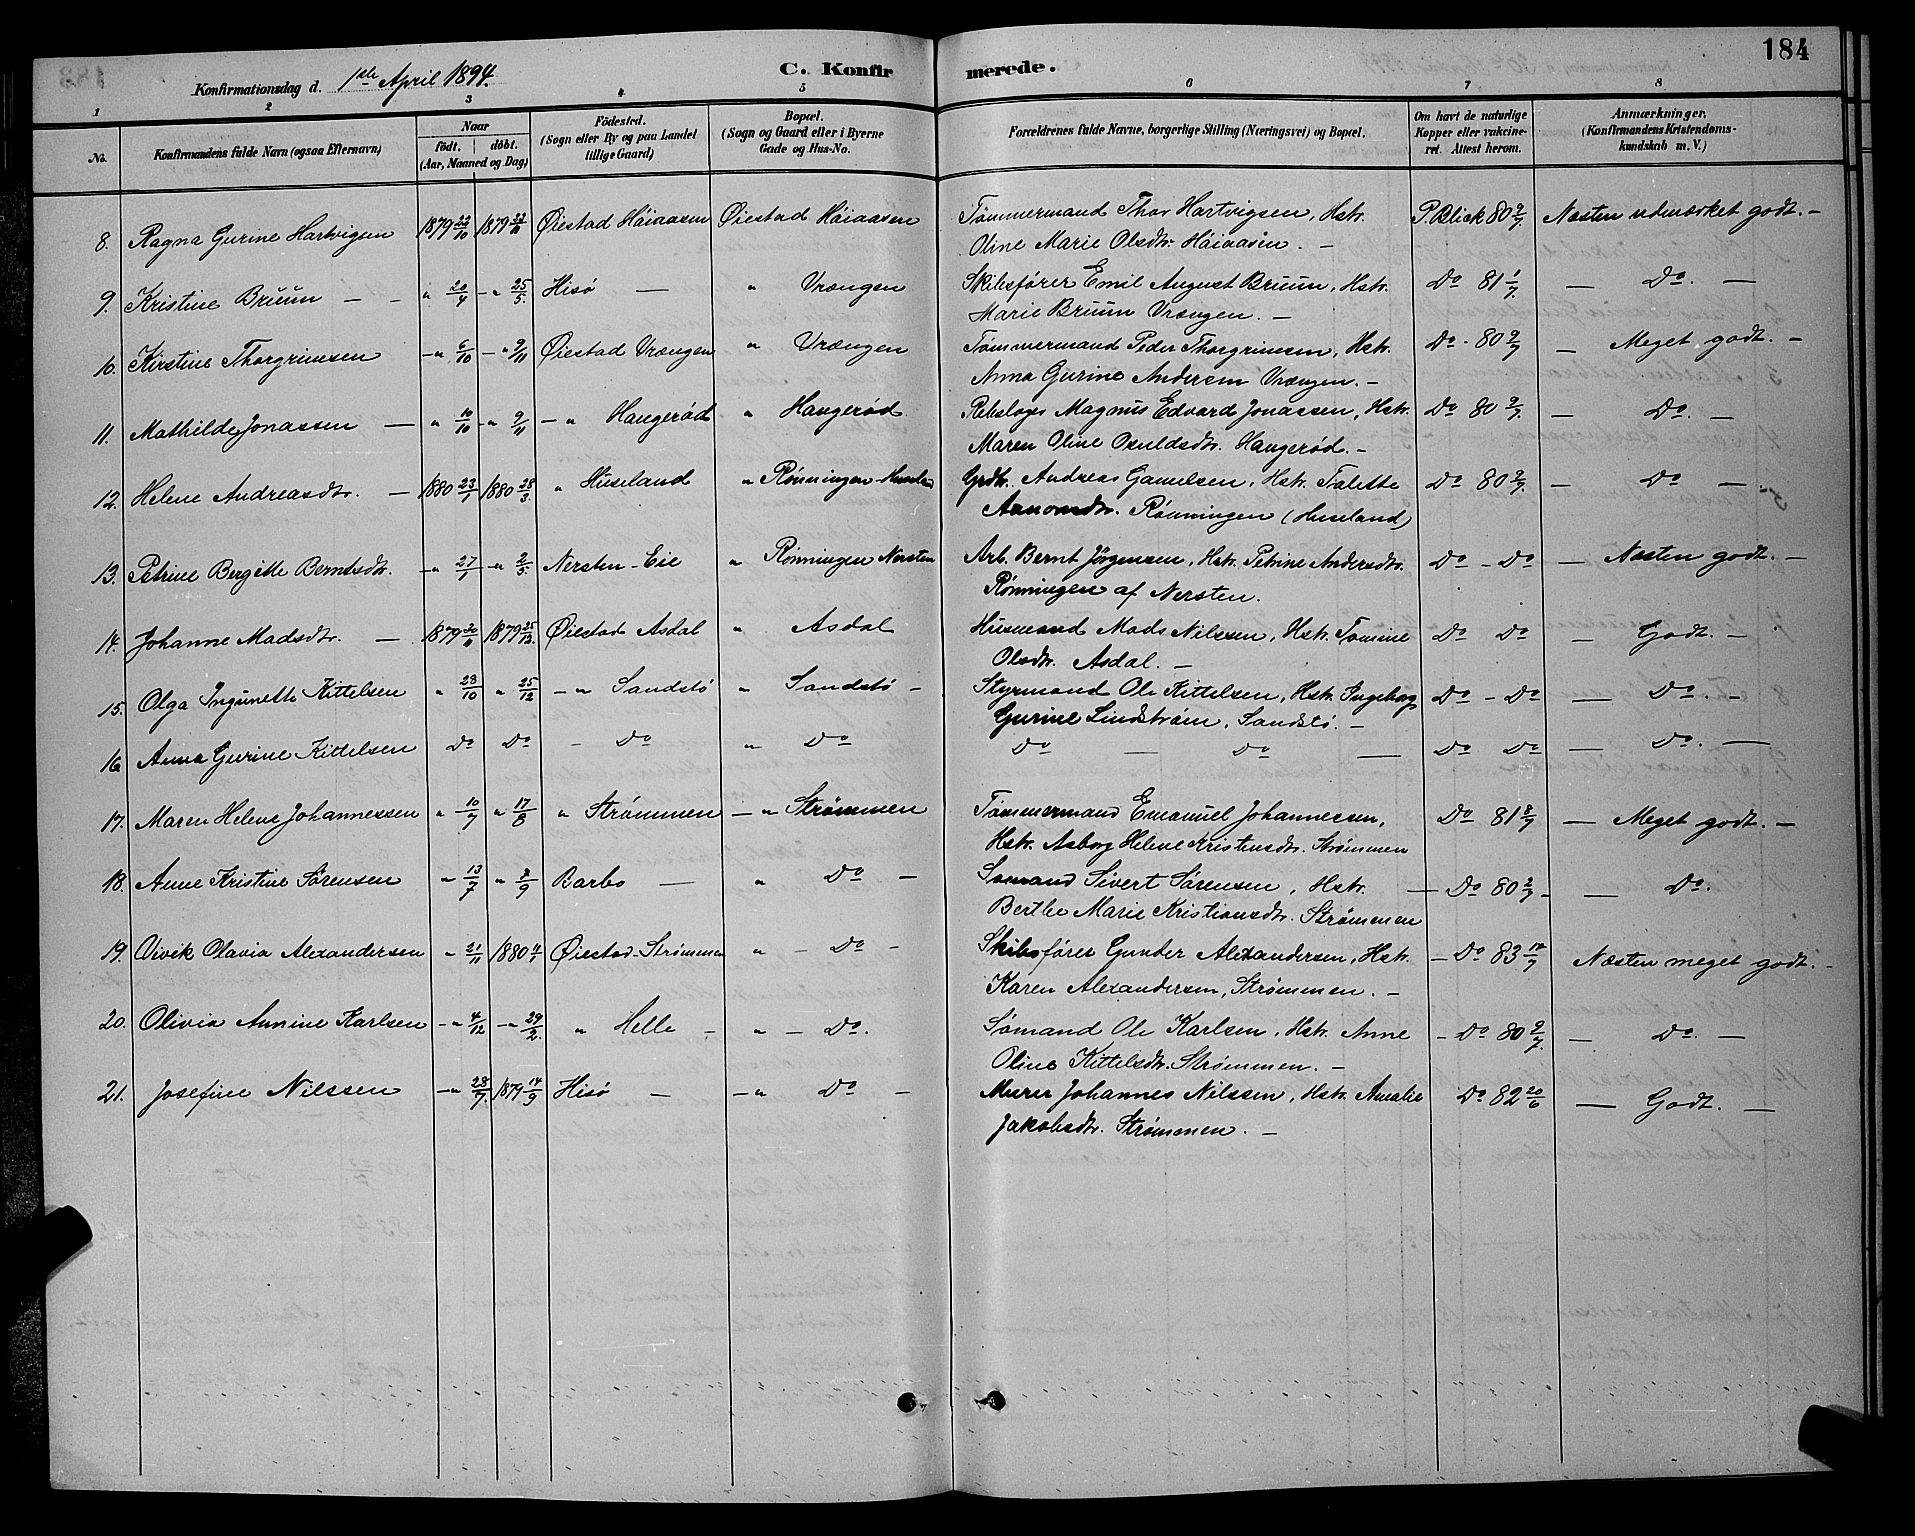 184
Konfirmationsdag d. 1ste April 1894.
C. Konfirmerede.
1 2 3 4 5 6 7 8
No.
Konfirmandens fulde Navn (ogsaa Efternavn)
Naar
födt. döbt.
(Aar, Maaned og Dag)
Födested.
(Sogn eller By og paa Landet
tillige Gaard)
Bopæl.
(Sogn og Gaard eller i Byerne
Gade og Hus-No.
Forældrenes fulde Navne, borgerlige Stilling (Næringsvei) og Bopæl.
Om havt de naturlige
Kopper eller vakcine-
ret. Attest herom.
Anmærkninger.
(Konfirmandens Kristendoms-
kundskab m. V.)
8. Ragna Gurine Hartvigsen 1879 22/10 1879 23/11 Øiestad Håiaasen Øiestad Håiaasen Tømmermand Thor Hartvigsen, Hstr. P. Blick 80 9/7. Næsten udmærket godt. -
Oline Marie Olsdtr. Håiaasen. -
9. Kristine Bruun - - " 20/4 - " 25/5. Hisö - " Vrængen Skibsfører Emil August Bruun, Hstr. Do 81 1/7. - Do. -
Marie Bruun Vrængen. -
10. Kirstine Thorgrimsen - " 6/10 - " 9/11 Øiestad Vrængen " Vrængen Tømmermand Peder Thorgrimsen, Hstr. Do - 80 9/7 - Meget godt. -
Anna Gurine Andersen Vrængen. -
11. Mathilde Jonassen - " 10/10 - " 9/11 - " Haugerød " Haugerød Rebslager Magnus Edvard Jonassen, Hstr. Do 80 9/7. - Do. -
Maren Oline Osuldsdtr. Haugerød. -
12. Helene Andreasdtr. - 1880 23/1 1880 28/3. " Huseland " Rønningen Huseland Grdbr. Andreas Gamelsen, Hstr. Talette Do 80 9/7. - Do -
Aanonsdtr. Rønningen (Huseland)
13. Petrine Bergitte Berntsdtr. - " 27/1 - " 2/5. Nersten - Eie " Rønningen Nersten Arb. Bernt Jørgensen, Hstr. Petrine Andersdtr. Do - Do - Næsten godt. -
Rønningen af Nersten.
14. Johanne Madsdtr. - 1879 30/11 1879 25/12. Øiestad Asdal " Asdal Husmand Mads Nilssen, Hstr. Tomine Do Do - Godt. -
Olsdtr. Asdal. -
15. Olga Ingunette Kittelsen " 28/10 " 25/12 - " Sandstø " Sandstø - Styrmand Ole Kittelsen, Hstr. Ingeborg Do - Do - Do. -
Gurine Lindstrøm, Sandstø. -
16. Anna Gurine Kittelsen Do Do - Do " Do Do - Do - Do Do - Do. -
17. Maren Helene Johannessen " 10/7 " 17/8 " Strømmen - " Strømmen Tømmermand Emanuel Johannessen, Do 81 8/7 - Meget godt. -
Hstr. Asborg Helene Kristensdtr. Strømmen
18. Anne Kristine Sørensen " 13/7 " 2/9 Barbo - " Do - Sømand Sivert Sørensen, Hstr. - Do 80 2/7 - - Do.
Berthe Marie Kristiansdtr. Strømmen
19. Vivik Olavia Alexandersen " 21/11 1880 4/1 Øiestad - Strømmen " - Do - Skibsfører Gunder Alexandersen, Hstr. - Do 83 12/7 Næsten meget godt. -
Karen Alexandersen, Strømmen. -
20. Olivia Annine Karlsen - " 4/12 - " 29/2. " Helle - " - Do. Sømand Ole Karlsen, Hstr. Anne - Do 80 9/7. - Do. -
Oline Kittelsdtr. Strømmen. -
21. Josefine Nilssen - " 28/7. 1879 14/9 Hisø - - " Do - Murer Johannes Nilssen, Hstr. Amalie Do 82 20/6 - Godt. -
Jakobsdtr. Strømmen. -